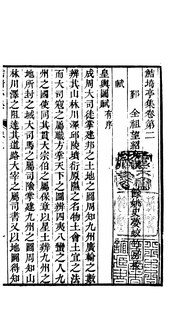 鮚埼亭集卷第二
鄞 全祖望紹衣
賦
皇輿圖賦有序
成周大司徒掌建邦之土地之圖周知九州廣輪之數
辨其山林川澤邱陵墳衍原隰之名物土會土宜之法
而大司寇之屬職方掌天下之圖辨四夷八蠻之人九
州之國使同其貫大宗伯之屬保章以星土辨九州之
地所封之域大司馬之屬司險掌建九州之圖知山
林川澤之阻達其道路大宰之屬司書又以地圖得知